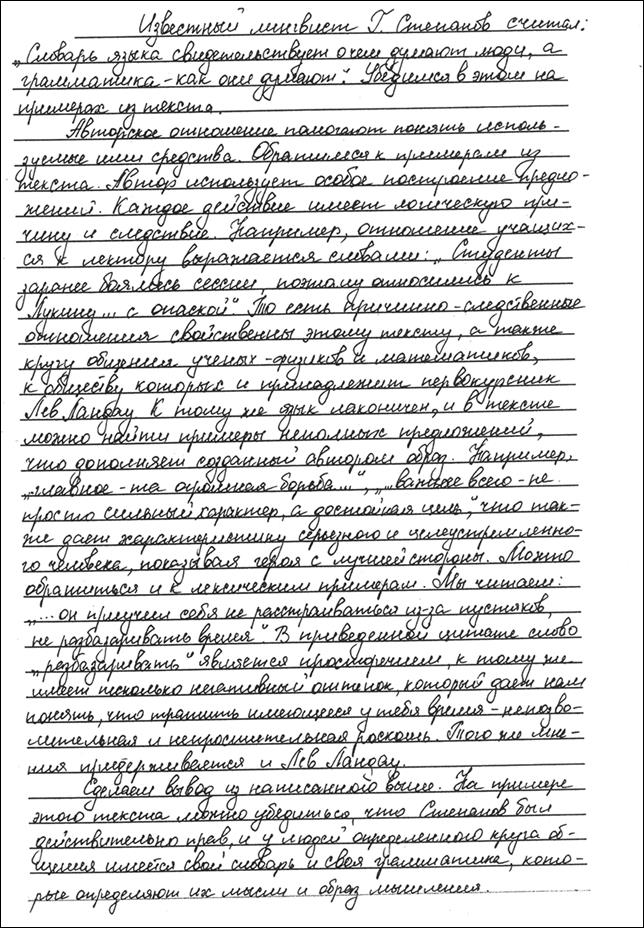 Известный лингвист Г. Степанов считал:
„Словарь языка свидетельствует о чем думают люди, а
грамматика - как они думают". Убедимся в этом на
примерах из текста.
Авторское отношение помогают понять исполь-
зуемые ими средства. Обратимся к примерам из
текста. Автор использует особое построение предло-
жений. Каждое действие имеет логическую при-
чину и следствие. Например, отношение учащих-
ся к лектору выражается словами: „Студенты
заранее боялись сессии, поэтому относились к
Лукину... с опаской" То есть причинно-следственные
отношения свойственны этому тексту, а также
кругу общения ученых-физиков и математиков,
к обществу которых и принадлежит первокурсник
Лев Ландау К тому же язык лаконичен, и в тексте
можно найти примеры неполных предложений,
что дополняет созданный автором образ. Например,
„главное - та огромная борьба...", „...важнее всего - не
просто сильный характер, а достойная цель", что так-
же дает характеристику серьезного и целеустремленно-
го человека, показывая героя с лучшей стороны. Можно
обратиться и к лексическим примерам. Мы читаем:
„... он приучил себя не расстраиваться из-за пустяков,
не разбазаривать время" В приведенной цитате слово
„разбазаривать" является просторечием, к тому же
имеет несколько негативный оттенок, который дает нам
понять, что тратить имеющееся у тебя время - непозво-
лительная и непростительная роскошь. Того же мне-
ния придерживается и Лев Ландау.
Сделаем вывод из написанного выше. На примере
этого текста можно убедиться, что Степанов был
действительно прав, и у людей определенного круга об-
щения имеется свой словарь и своя грамматика, кото-
рые определяют их мысли и образ мышления.